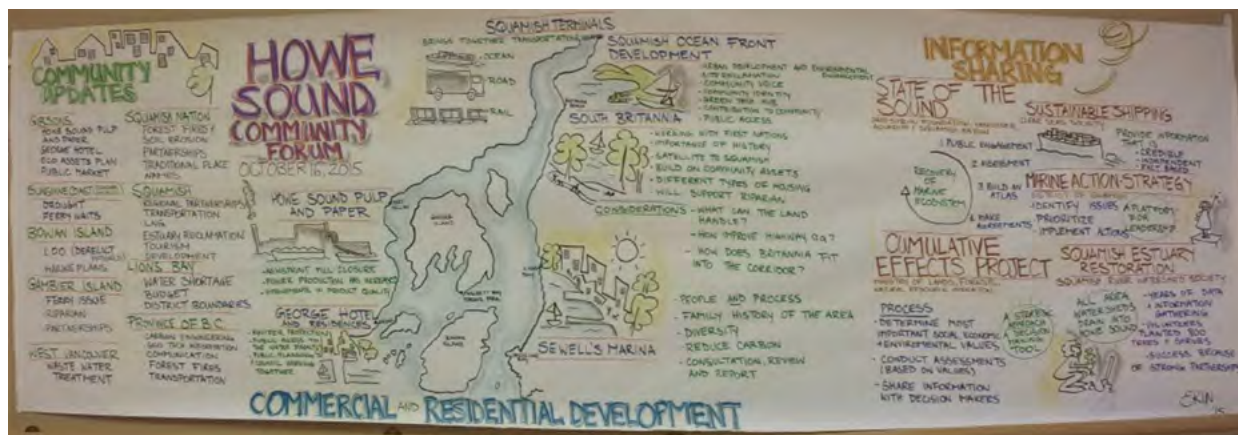 COMMUNITY
UPDATES
GIBSONS
HOWE SOUND PULP
AND PAPER
GEORGE HOTEL
ECO ASSETS PLAN
PUBLIC MARKET
SUNSHINE COAST
DROUGHT
FERRY WAITS
BOWEN ISLAND
L.O.O. (DERELICT
MARINE PLANS
GAMBIER ISLAND
FERRY ISSUE
RIPARIAN
PARTNERSHIPS
WEST VANCOUVER
WASTE WATER
TREATMENT
SQUAMISH NATION
FOREST FIRES
SOIL EROSION
PARTNERSHIPS
TRADITIONAL PLACE
NAMES
SQUAMISH
REGIONAL PARTNERSHIPS
TRANSPORTATION
LNG
ESTUARY RECLAMATION
TOURISM
DEVELOPMENT
LIONS BAY
WATER SHORTAGE
BUDGET
DISTRICT BOUNDARIES
PROVINCE OF B.C.
CARBON ENGINEERING
COMMUNICATION
FOREST FIRES
TRANSPORTATION
HOWE
SOUND
COMMUNITY
FORUM
OCTOBER 16, 2015
HOWE SOUND PULP
AND PAPER
- NEWSPRINT MILL CLOSURE
- POWER PRODUCTION HAS INCREASED
- IMPROVEMENTS IN PRODUCT QUALITY
GEORGE HOTEL
AND RESIDENCES
PUBLIC ACCESS TO
THE WATER FRONT
PUBLIC PLANNING
COUNCIL WORKING
TOGETHER
SQUAMISH TERMINALS
BRINGS TOGETHER TRANSPORTATION
OCEAN
ROAD
RAIL
SQUAMISH OCEAN FRONT
DEVELOPMENT
- URBAN DEVELOPMENT AND ENVIRONMENTAL
- COMMUNITY VOICE
- COMMUNITY IDENTITY
- GREEN TECH HUB
- CONTRIBUTION TO COMMUNITY
- PUBLIC ACCESS
SOUTH BRITANNIA
- WORKING WITH FIRST NATIONS
- IMPORTANCE OF HISTORY
- SATELLITE TO SQUAMISH
- BUILD ON COMMUNITY ASSETS
- DIFFERENT TYPES OF HOUSING
- WILL SUPPORT RIPARIAN
CONSIDERATIONS
- WHAT CAN THE LAND
HANDLE?
- HOW IMPROVE HIGHWAY 99?
- HOW DOES BRITANNIA FIT
INTO THE CORRIDOR?
SEWELL'S MARINA
- PEOPLE AND PROCESS
- FAMILY HISTORY OF THE AREA
- DIVERSITY
- REDUCE CARBON
- CONSULTATION, REVIEW
AND REPORT
COMMERCIAL AND RESIDENTIAL DEVELOPMENT
INFORMATION
SHARING
STATE OF THE
SOUND
1. PUBLIC ENGAGEMENT
2. ASSESSMENT
3. BUILD AN
ATLAS
4. MAKE
AGREEMENTS
RECOVERY
OF
MARINE
ECOSYSTEM
SUSTAINABLE SHIPPING
CLEAR SEAS SOCIETY
PROVIDE INFORMATION
THAT IS
- CREDIBLE
- INDEPENDENT
- FACT BASED
MARINE ACTION STRATEGY
IDENTIFY ISSUES
PRIORITIZE
IMPLEMENT ACTIONS
A PLATFORM
FOR
LEADERSHIP
CUMULATIVE
EFFECTS PROJECT
MINISTRY OF LANDS, FORESTS,
NATURAL RESOURCE OPERATIONS
PROCESS
- DETERMINE MOST
IMPORTANT SOCIAL ECONOMIC
+ ENVIRONMENTAL VALUES
- CONDUCT ASSESSMENTS
(BASED ON VALUES)
- SHARE INFORMATION
WITH DECISION MAKERS
A STRATEGIC
APPROACH
A DECISION
MAKING
TOOL
SQUAMISH ESTUARY
RESTORATION
SQUAMISH RIVER WATERSHED SOCIETY
ALL AREA
WATERSHEDS
DRAIN IN
HOWE SOUND
- YEARS OF DATA
+ INFORMATION
GATHERING
- VOLUNTEERS
PLANTED 800
TREES + SHRUBS
- SUCCESS BECAUSE
OF STRONG PARTNERSHIPS
EKIN
'15